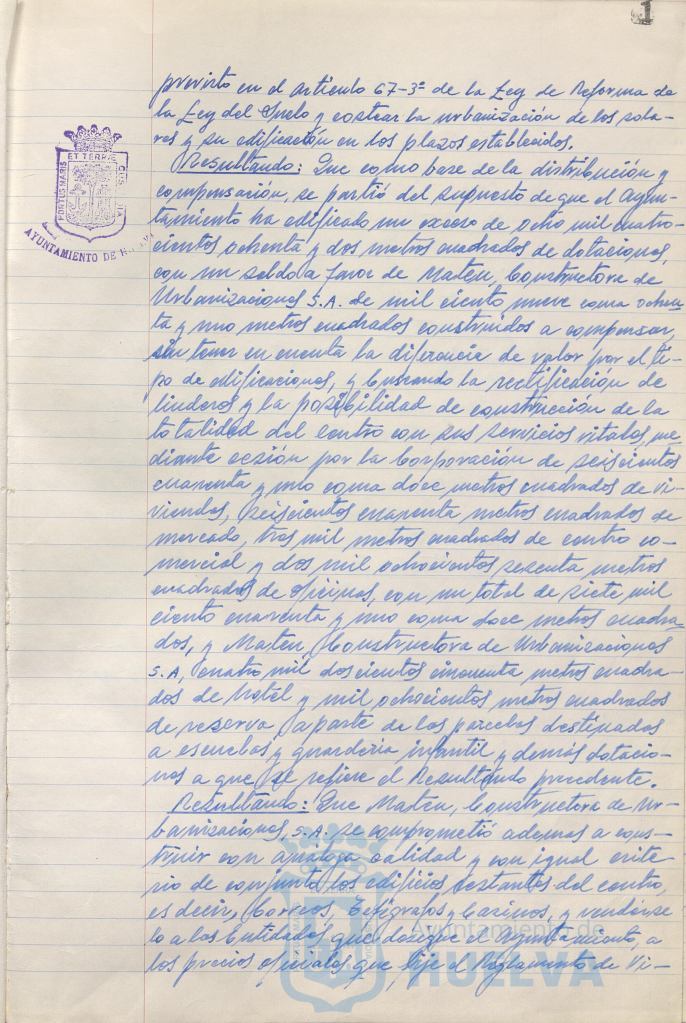 1
previsto en el artículo 67-3º de la Ley de Reforma de
la Ley del Suelo y costear la urbanización de los sola-
res y su edificación en los plazos establecidos.
Resultando: Que como base de la distribución y
compensación, se partió del supuesto de que el Ayun-
tamiento ha edificado un exceso de ocho mil cuatro-
cientos ochenta y dos metros cuadrados de dotaciones,
con un saldo a favor de Mateu, Constructora de
Urbanizaciones S.A. de mil ciento nueve coma ochen-
ta y uno metros cuadrados construidos a compensar,
sin tener en cuenta la diferencia de valor por el ti-
po de edificaciones, y buscando la rectificación de
linderos y la posibilidad de construcción de la
totalidad del centro con sus servicios vitales, me-
diante cesión por la Corporación de seiscientos
cuarenta y uno coma doce metros cuadrados de vi-
viendas, seiscientos cuarenta metros cuadrados de
mercado, tres mil metros cuadrados de centro co-
mercial y dos mil ochocientos sesenta metros
cuadrados de oficinas, con un total de siete mil
ciento cuarenta y uno coma doce metros cuadra-
dos, y Mateu, Constructora de Urbanizaciones
S.A, cuatro mil doscientos cincuenta metros cuadra-
dos de hotel y mil ochocientos metros cuadrados
de reserva, aparte de las parcelas destinadas
a escuelas y guardería infantil y demás dotacio-
nes a que se refiere el Resultando precedente.
Resultando: Que Mateu, Constructora de Ur-
banizaciones, S.A. se comprometió ademas a cons-
truir con análoga calidad y con igual crite-
rio de conjunto los edificios restantes del centro,
es decir, Correos, Telégrafos y Casinos, y vendérse-
lo a las Entidades que designe el Ayuntamiento, a
los precios oficiales que fije el Reglamento de Vi-
PORTUS MARIS ET TERRAE CUSTODIA
AYUNTAMIENTO DE HUELVA
Ayuntamiento de
HUELVA